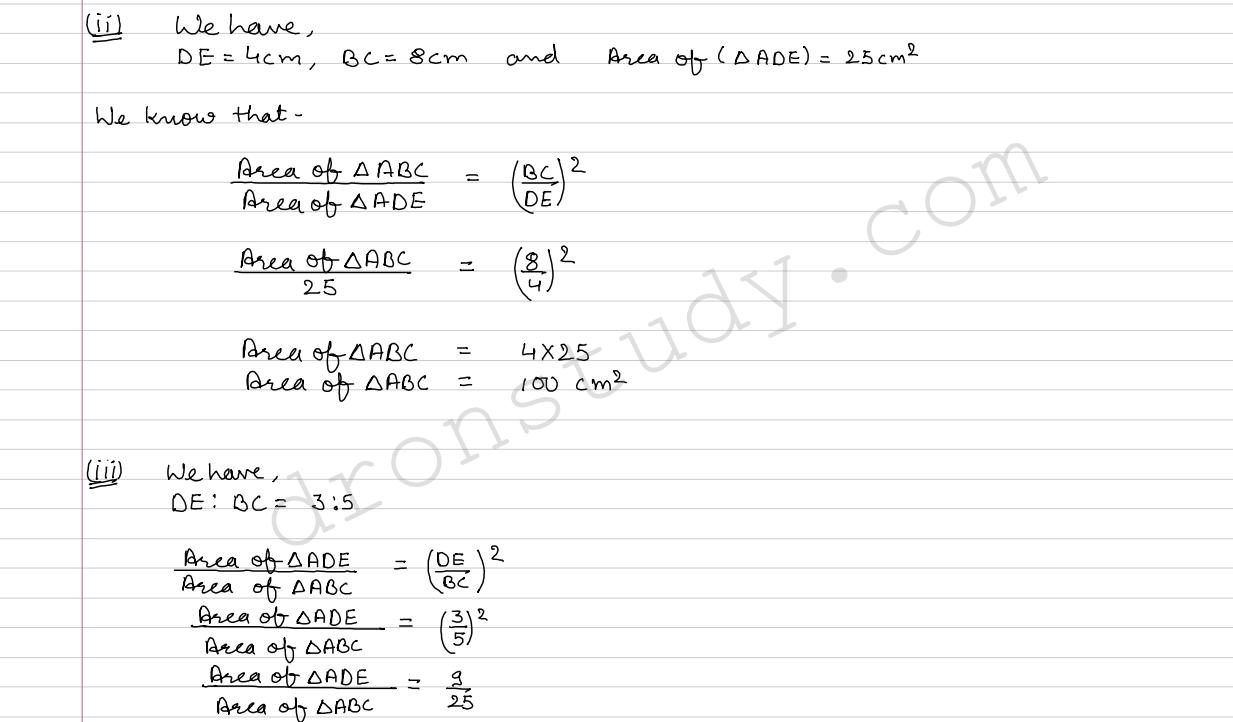 (ii) We have,
DE = 4cm, BC = 8cm and Area of (△ADE) = 25cm²
We know that-
Area of △ABC / Area of △ADE = (BC/DE)²
Area of △ABC / 25 = (8/4)²
Area of △ABC = 4×25
Area of △ABC = 100 cm²
(iii) We have,
DE : BC = 3:5
Area of △ADE / Area of △ABC = (DE/BC)²
Area of △ADE / Area of △ABC = (3/5)²
Area of △ADE / Area of △ABC = 9/25
dronstudy.com